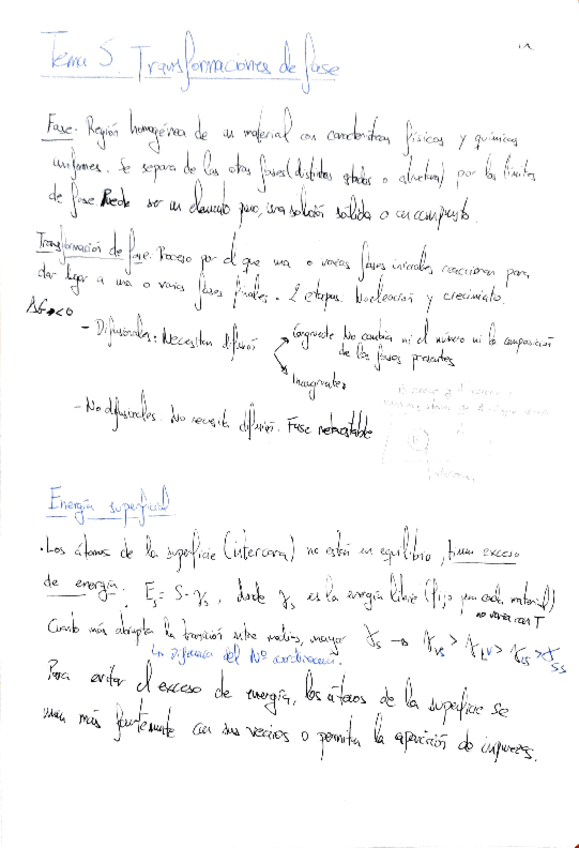 Tema 5. Transformaciones de fase
Fase. Región homogénea de un material con características físicas y químicas
uniformes. Se separa de las otras fases (distintos estados o estructura) por los límites
de fase. Puede ser un elemento puro, una solución sólida o un compuesto.
Transformación de fase. Proceso por el que una o varias fases iniciales reaccionan para
dar lugar a una o varias fases finales. 2 etapas. Nucleación y crecimiento.
ΔG<0
- Difusionales: Necesitan difusión
Congruente No cambia ni el número ni la composición
de las fases presentes
Incongruentes
- No difusionales. No necesita difusión. Fase metaestable
Energía superficial
· Los átomos de la superficie (intercara) no están en equilibrio, tienen exceso
de energía. Es = S·γs, donde γs es la energía libre (fijo para cada material)
no varía con T
Cuanto más abrupta la transición entre medios, mayor γs → γvs > γLv > γLs > γss
La Diferencia del Nº coordinacion.
Para evitar el exceso de energía, los átomos de la superficie se
unen más fuertemente con sus vecinos o permiten la aparición de impurezas.